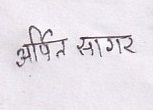 अर्पित सागर